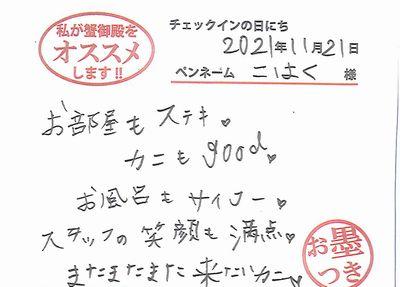 私が蟹御殿を
オススメ
します!!
チェックインの日にち
2021年11月21日
ペンネーム こはく 様
お部屋もステキ♥
カニもgood♥
お風呂もサイコー♥
スタッフの笑顔も満点♥
またまたまた来たいカニ♥
お墨
つき